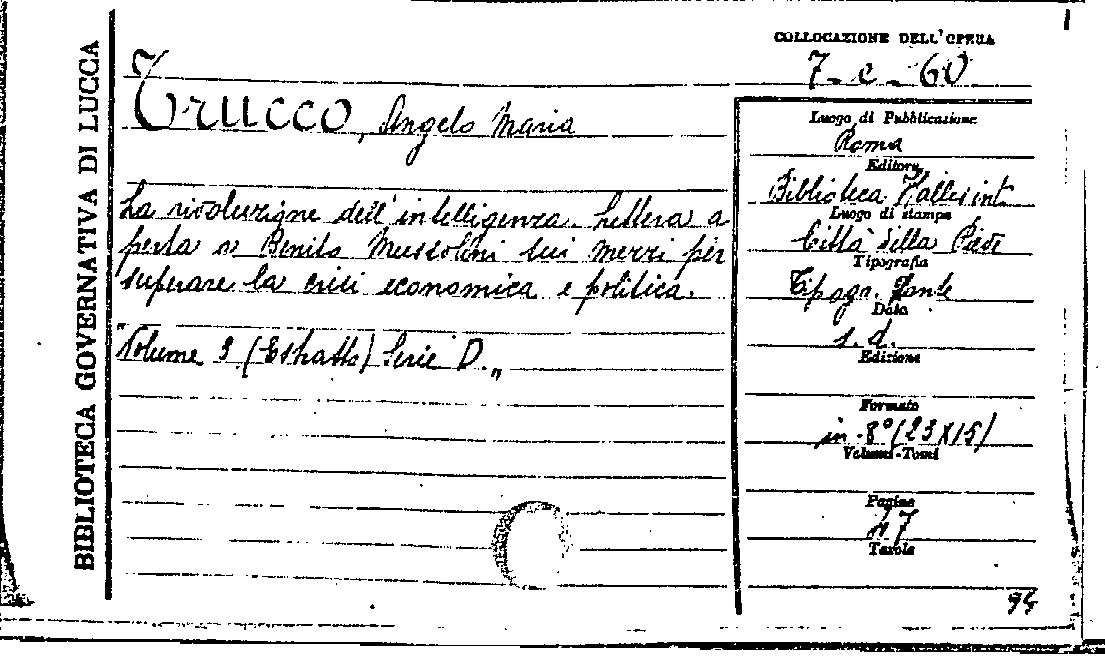 BIBLIOTECA GOVERNATIVA DI LUCCA
COLLOCAZIONE DELL'OPERA
7-c-60
Trucco, Angelo Maria
La rivoluzione dell'intelligenza. Lettera a
perta a Benito Mussolini sui mezzi per
superare la crisi economica e politica.
"Volume 3 (Estratto) Serie D.„
Luogo di Pubblicazione
Roma
Editore
Biblioteca
Luogo di stampa
Città della Pieve
Tipografia
Tipogr. Dante
Data
s. d.
Edizione
Formato
in-8° (23X15)
Volumi-Tomi
Pagine
47
Tavole
94